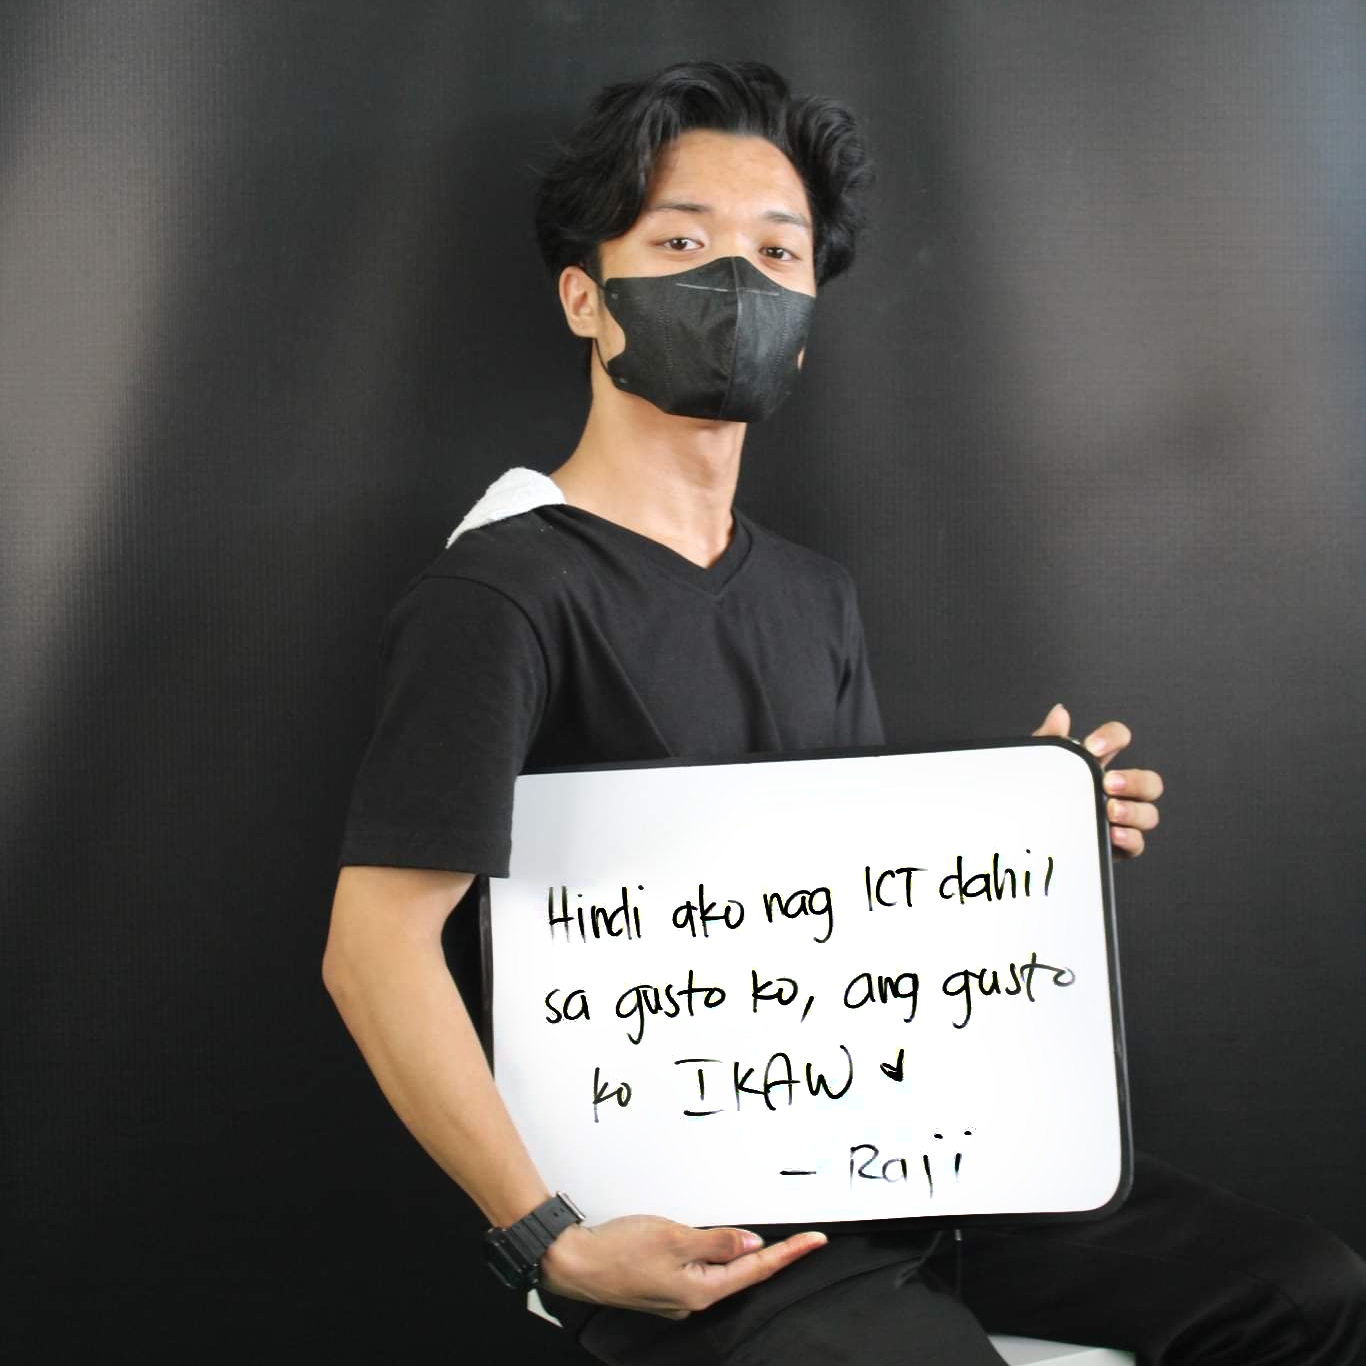 Hindi ako nag ICT dahil
sa gusto ko, ang gusto
ko IKAW ♥
– Raji